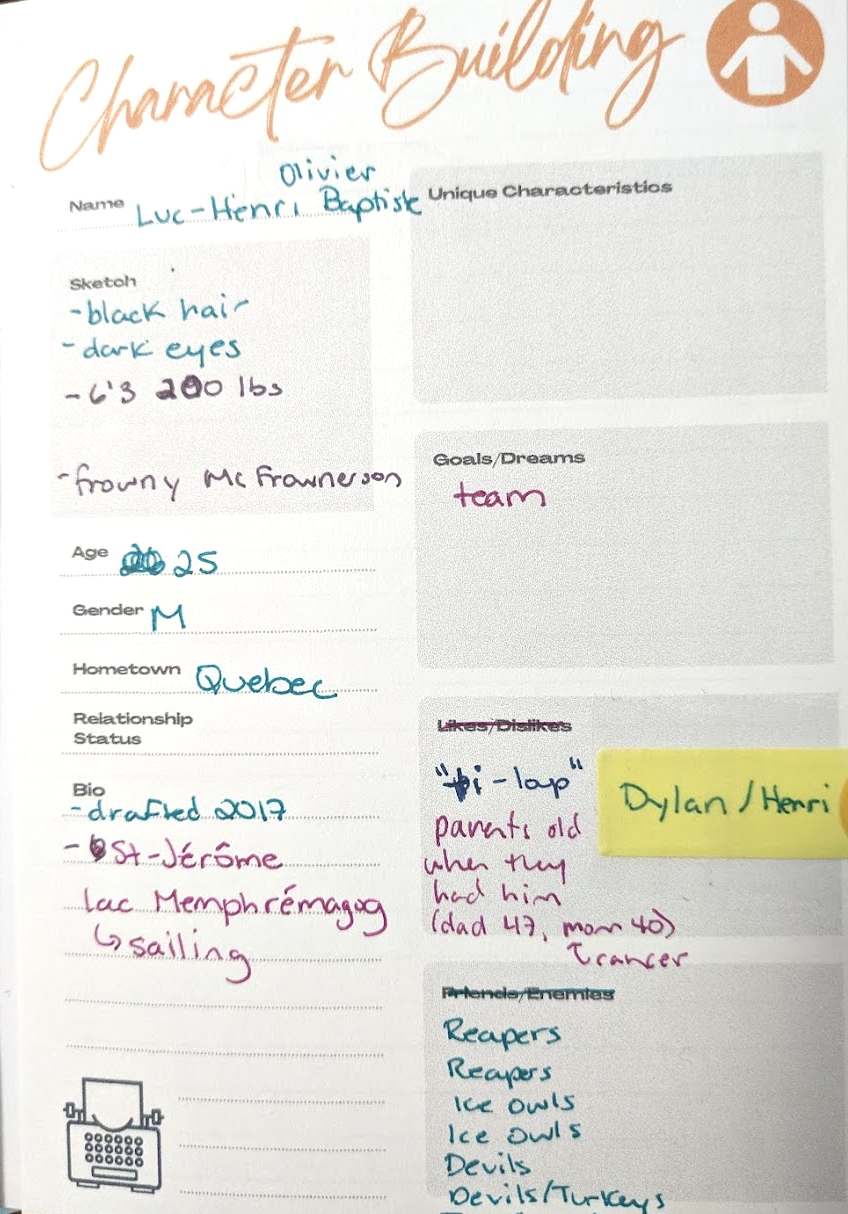 Character Building
Olivier
Name Luc-Henri Baptiste
Sketch
-black hair
-dark eyes
-6'3 200 lbs
-frowny McFrownerson
Age 25
Gender M
Hometown Quebec
Relationship
Status
Bio
-drafted 2017
-St-Jérôme
Lac Memphrémagog
↳sailing
Unique Characteristics
Goals/Dreams
team
Likes/Dislikes
"ti-lap"
parents old
when they
had him
(dad 47, mom 40)
cancer
Dylan/Henri
Friends/Enemies
Reapers
Reapers
Ice Owls
Ice Owls
Devils
Devils/Turkeys